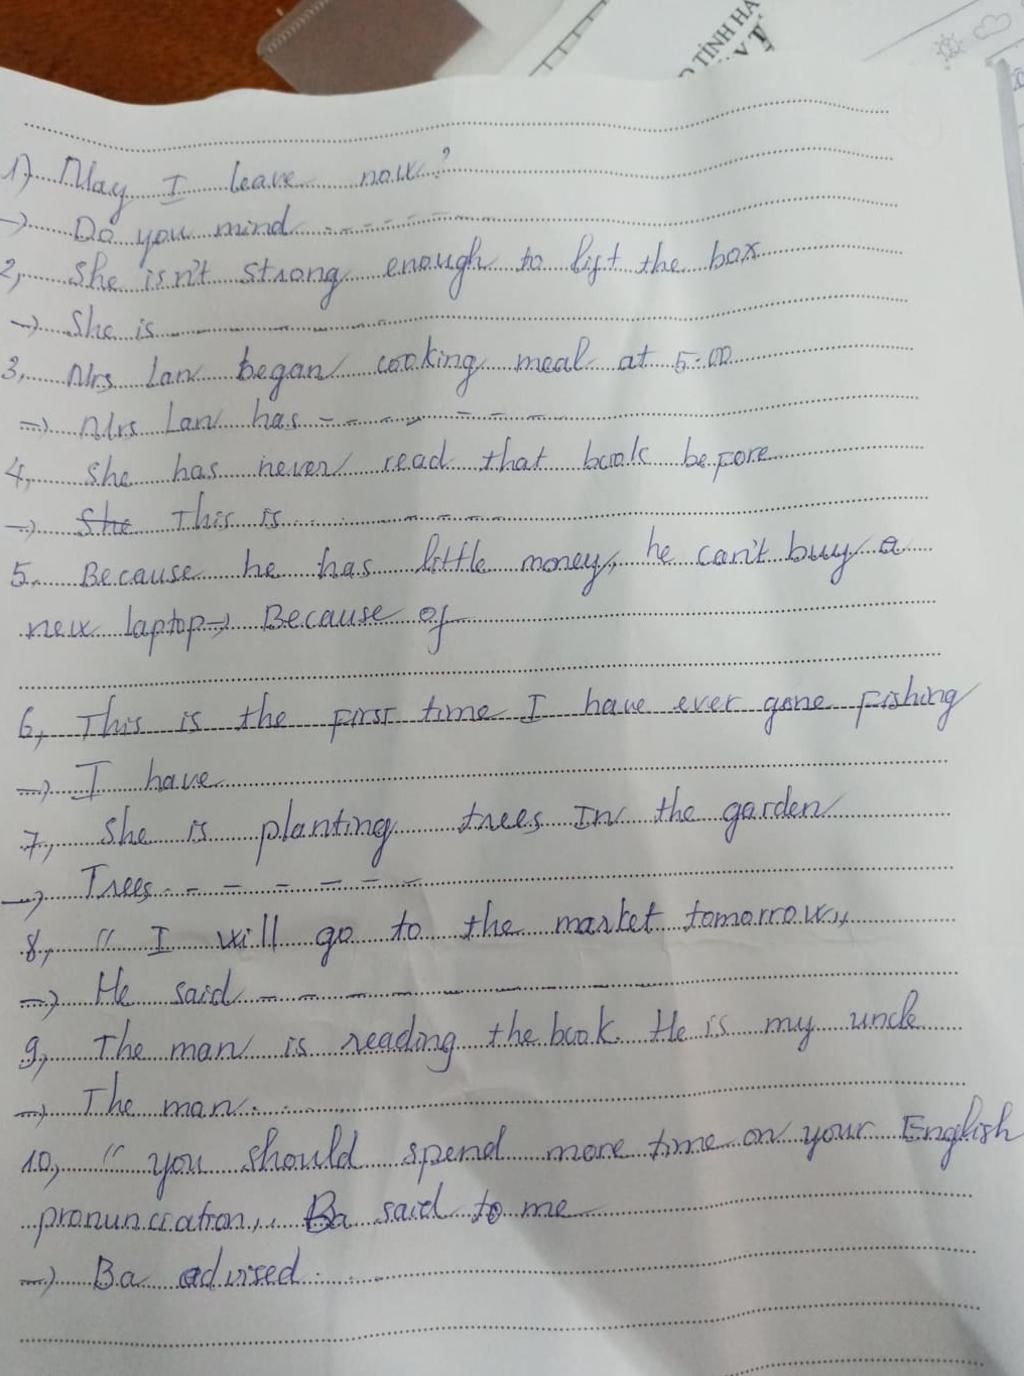 O TỈNH HÀ
1) May I leave now?
→ Do you mind
2, She isn't strong enough to lift the box
→ She is
3, Mrs Lan began cooking meal at 5:00
→ Mrs Lan has
4, She has never read that book before
→ She This is
5. Because he has little money, he can't buy a
new laptop → Because of
6, This is the first time I have ever gone fishing
→ I have
7, She is planting trees In the garden
→ Trees
8, "I will go to the market tomorrow,,
→ He said
9, The man is reading the book. He is my uncle
→ The man
10, "you should spend more time on your English
pronunciation,, Ba said to me
→ Ba advised